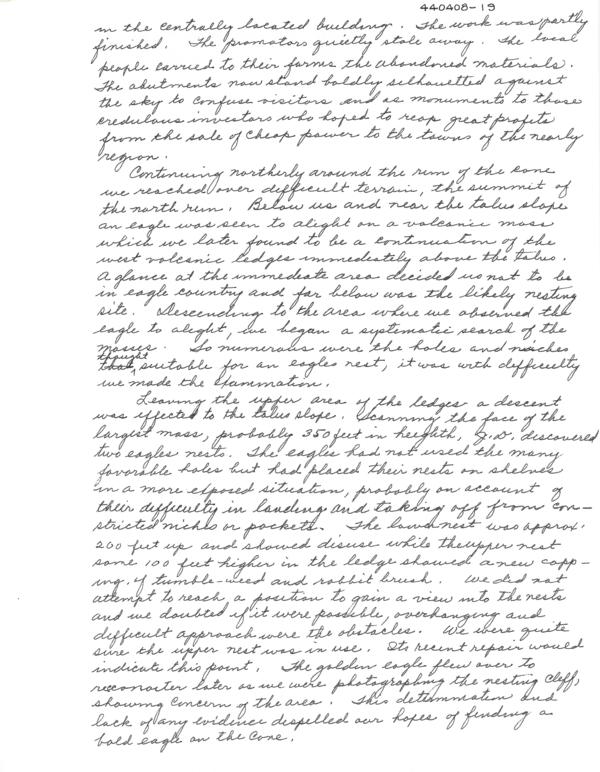 440408-19
in the centrally located building. The work was partly
finished. The promotors quietly stole away. The local
people carried to their farms the abandoned materials.
The abutments now stand boldly silhouetted against
the sky to confuse visitors and as monuments to those
credulous investors who hoped to reap great profits
from the sale of cheap power to the towns of the nearly
region.
Continuing northerly around the rim of the cone
we reached over difficult terrain, the summit of
the north rim. Below us and near the talus slope
an eagle was seen to alight on a volcanic mass
which we later found to be a continuation of the
west volcanic ledges immediately above the talus.
A glance at the immediate area decided us not to be
in eagle country and far below was the likely nesting
site. Descending to the area where we observed the
eagle to alight, we began a systematic search of the
masses. So numerous were the holes and niches
thought
that suitable for an eagles nest, it was with difficulty
we made the examination.
Leaving the upper area of the ledges a descent
was effected to the talus slope. Scanning the face of the
largest mass, probably 350 feet in heighth, J.D. discovered
two eagles nests. The eagles had not used the many
favorable holes but had placed their nests on shelves
in a more exposed situation, probably on account of
their difficulty in landing and taking off from con-
stricted niches or pockets. The lower nest was approx.
200 feet up and showed disuse while the upper nest
some 100 feet higher in the ledge showed a new copp-
ing of tumble-weed and rabbit brush. We did not
attempt to reach a position to gain a view into the nests
and we doubted if it were possible, overhanging and
difficult approach were the obstacles. We were quite
sure the upper nest was in use. Its recent repair would
indicate this point. The golden eagle flew over to
reconoiter later as we were photographing the nesting cliff,
showing concern of the area. This determination and
lack of any evidence dispelled our hopes of finding a
bald eagle on the Cone.